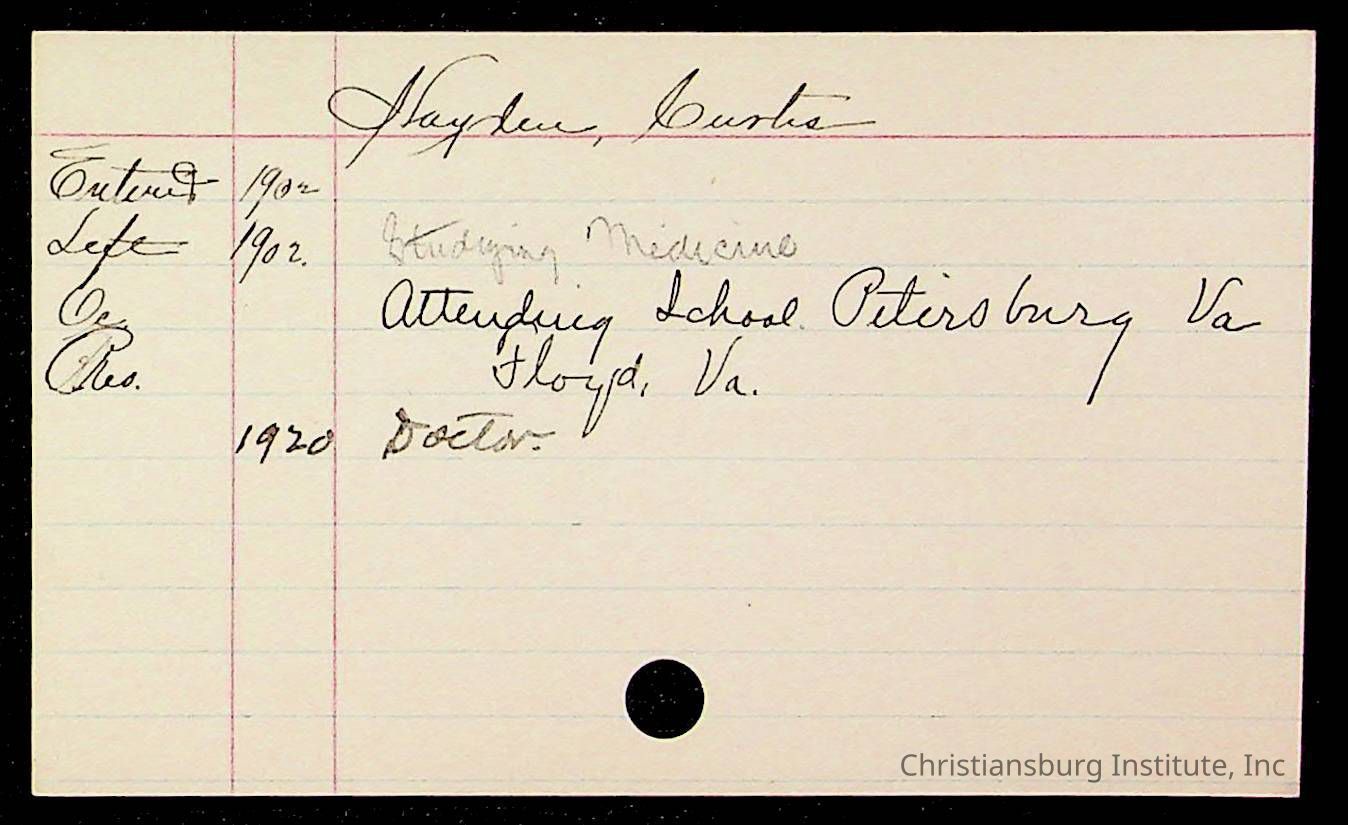 Hayden, Curtis
Entered 1902
Left 1902. Studying Medicine
Oc. Attending School Petersburg Va
Res. Floyd, Va.
1920 Doctor.
Christiansburg Institute, Inc